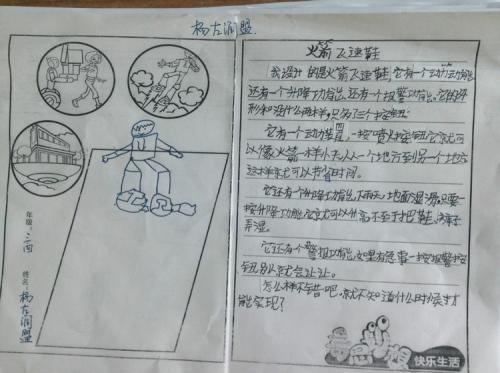 杨左润盟
年级：三四
姓名：杨左润盟
火箭飞速鞋
我设计的是火箭飞速鞋,它有一个动力功能
还有一个升降功能,还有一个报警功能。它的外
形和没什么两样,只有了三个按钮:
它有一个动力装置,一按喷火按钮它就可
以像火箭一样从一个地方到另一个地方
这样就可以节省时间。
它还有一个升降功能,下雨天,地面湿滑只要一
按升降功能它就可以升高不至于把鞋
弄湿。
它还有个警报功能,如果有急事一按报警按
钮别人就会让让。
怎么样不错吧,就不知道什么时候才
能实现?
奇思妙想
快乐生活